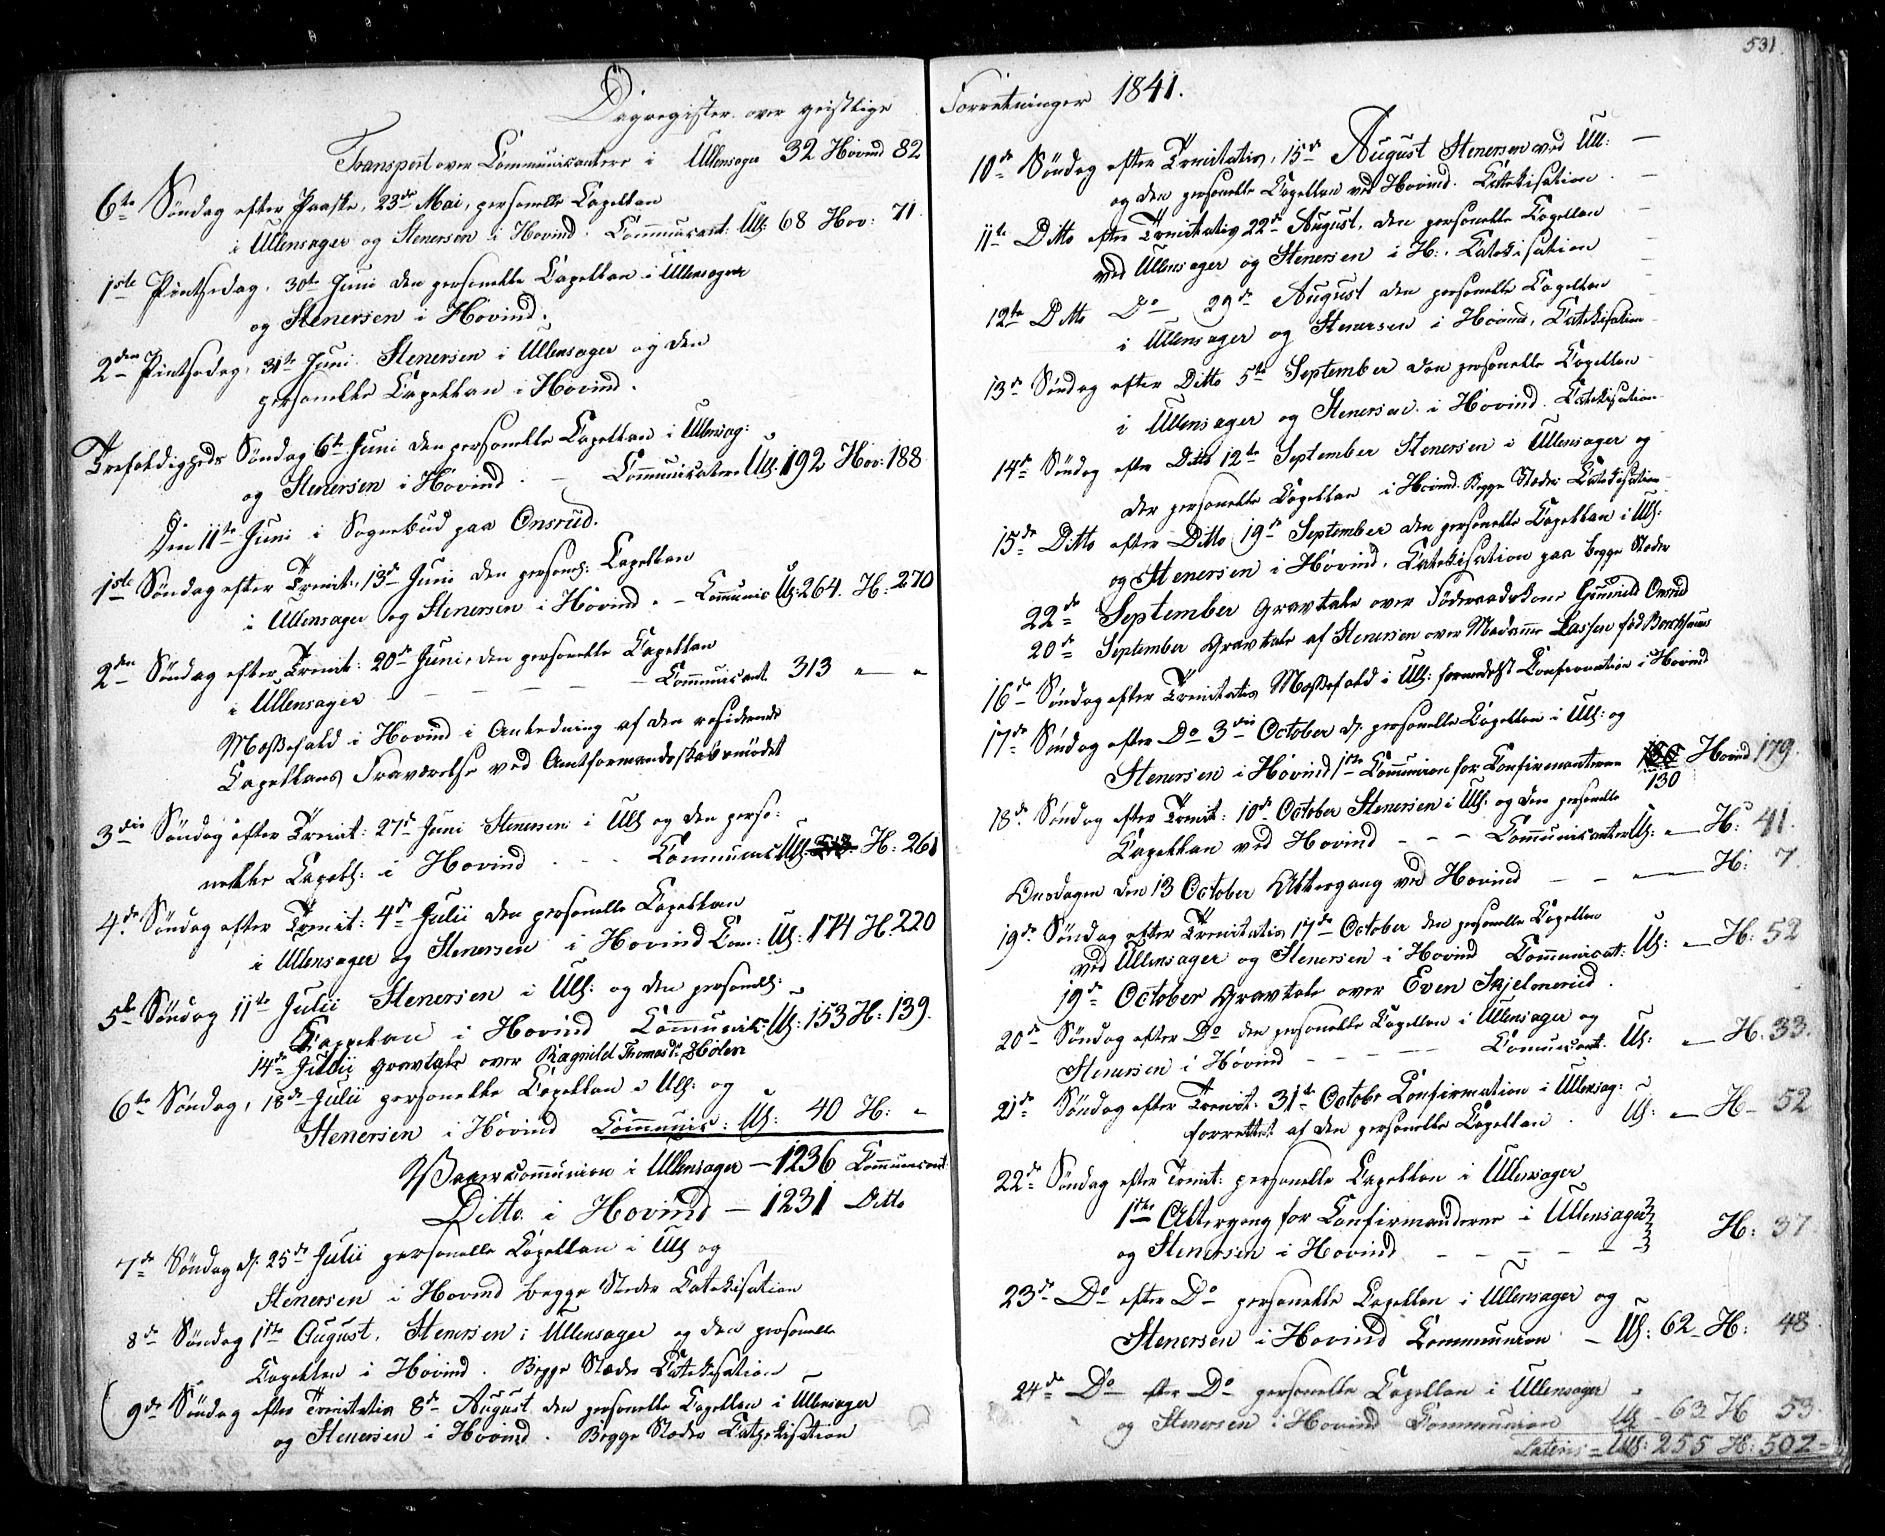 Dagregister over geistlige
Transport over Communicantere i Ullensager 32 Hovind 82
6te Søndag efter Paaske, 23de Mai, personelle Capellan
i Ullensager og Stenersen i Hovind. Communicant. Ull: 68 Hov: 71
1ste Pintsedag, 30te Juni den personelle Capellan i Ullensager
og Stenersen i Hovind.
2den Pintsedag, 31te Juni Stenersen i Ullensager og den
personelle Capellan i Hovind.
Trefoldigheds Søndag 6te Juni den personelle Capellan i Ullensag:
og Stenersen i Hovind. – Communicatere Ull: 192 Hov: 188
Den 11te Juni i Sognebud paa Onsrud.
1ste Søndag efter Trenit: 13de Juni den personel: Capellan
i Ullensager og Stenersen i Hovind. – Communic Ull: 264. H: 270
2den Søndag efter Trenit: 20de Juni, den personelle Capellan
i Ullensager – – – – – Communicant 313 " — "
Messefald i Hovind i Anledning af den residerende
Capellans Fraværelse ved Amtformandskabsmødet
3die Søndag efter Trenit: 27de Juni Stenersen i Ull og den perso:
nelle Capell: i Hovind . . . Communic Ull: 313 H: 261
4de Søndag efter Trenit: 4de Julii den personelle Capellan
i Ullensager og Stenersen i Hovind Com: Ull: 174 H: 220
5te Søndag 11te Julii Stenersen i Ull: og den personell:
Cappelan i Hovind Communik: Ull: 153 H: 139.
14de Julii Gravtale over Ragnild Thomasd: Holen
6te Søndag, 18de Julii personelle Capellan i Ull: og
Stenersen i Hovind Communic: Ull: 40 H: "
Vaarcommunion i Ullensager — 1236 Communicant
Ditto i Hovind — 1231 Ditto
7de Søndag d: 25de Julii personelle Capellan i Ull og
Stenersen i Hovind begge Steder Catekisation
8de Søndag 1ste August, Stenersen i Ullensager og den personelle
Capellan i Hovind. Begge Steder Catekisation
9de Søndag efter Trenitatis 8de August den personelle Capellan i Ullensager
og Stenersen i Hovind. Begge Steder Catekisation
531.
Forretninger 1841.
10de Søndag efter Trenitatis, 15de August Stenersen ved Ull: —
og den personelle Capellan ved Hovind. Catekisation. —
11te Ditto efter Trenitatis 22de August, den personelle Capellan
ved Ullensager og Stenersen i H:. Catekisation
12te Ditto Do 29de August den personelle Capellan
i Ullensager og Stenersen i Hovind, Catekisation
13de Søndag efter Ditto 5te September den personelle Capellan
i Ullensager og Stenersen i Hovind. Catekisation
14de Søndag efter Ditto 12te September Stenersen i Ullensager og
den personelle Capellan i Hovind. Begge Steder Catekisation
15de Ditto efter Ditto 19de September den personelle Capellan i Ull:
og Stenersen i Hovind, Catekisation paa begge Steder
22de September Gravtale over Föderaadskone Gunnild Onsrud
20de September Gravtale af Stenersen over Madamme Lassen fød
16de Søndag efter Trenitatis Messefald i Ull: formedelst Confirmation i Hovind
17de Søndag efter Do 3die October d: personelle Capellan i Ull: og
Stenersen i Hovind 1ste Communion for Confirmanterne Hovind 179.
130
18de Søndag efter Trenit: 10de October Stenersen i Ull: og den personelle
Capellan ved Hovind – – – Communicanter Ull: " — H: 41.
Onsdagen den 13 October Altergang ved Hovind – – — H: 7.
19de Søndag efter Trenitatis 17de October den personelle Capellan
ved Ullensager og Stenersen i Hovind Communicat: Ull: " — H: 52
19de October Gravtale over Even Skjelmerud.
20de Søndag efter Do den personelle Capellan i Ullensager og
Stenersen i Hovind – – – – – Communicant. Ull: " — H. 33.
21de Søndag efter Trenit: 31te Octobr Confirmation i Ullensag:
forrettet af den personelle Capellan. Ull: " — H – 52
22de Søndag efter Trenit: personelle Capellan i Ullensager
1ste Altergang for Confirmanderne i Ullensager
og Stenersen i Hovind – – – – – H: 37
23de Do efter Do personelle Capellan i Ullensager og
Stenersen i Hovind Communion – Ull: 62 – H: 48.
24de Do efter Do personelle Capellan i Ullensager
og Stenersen i Hovind Communion Ull – 63 H 53.
Lateris = Ull: 255 H: 502 =